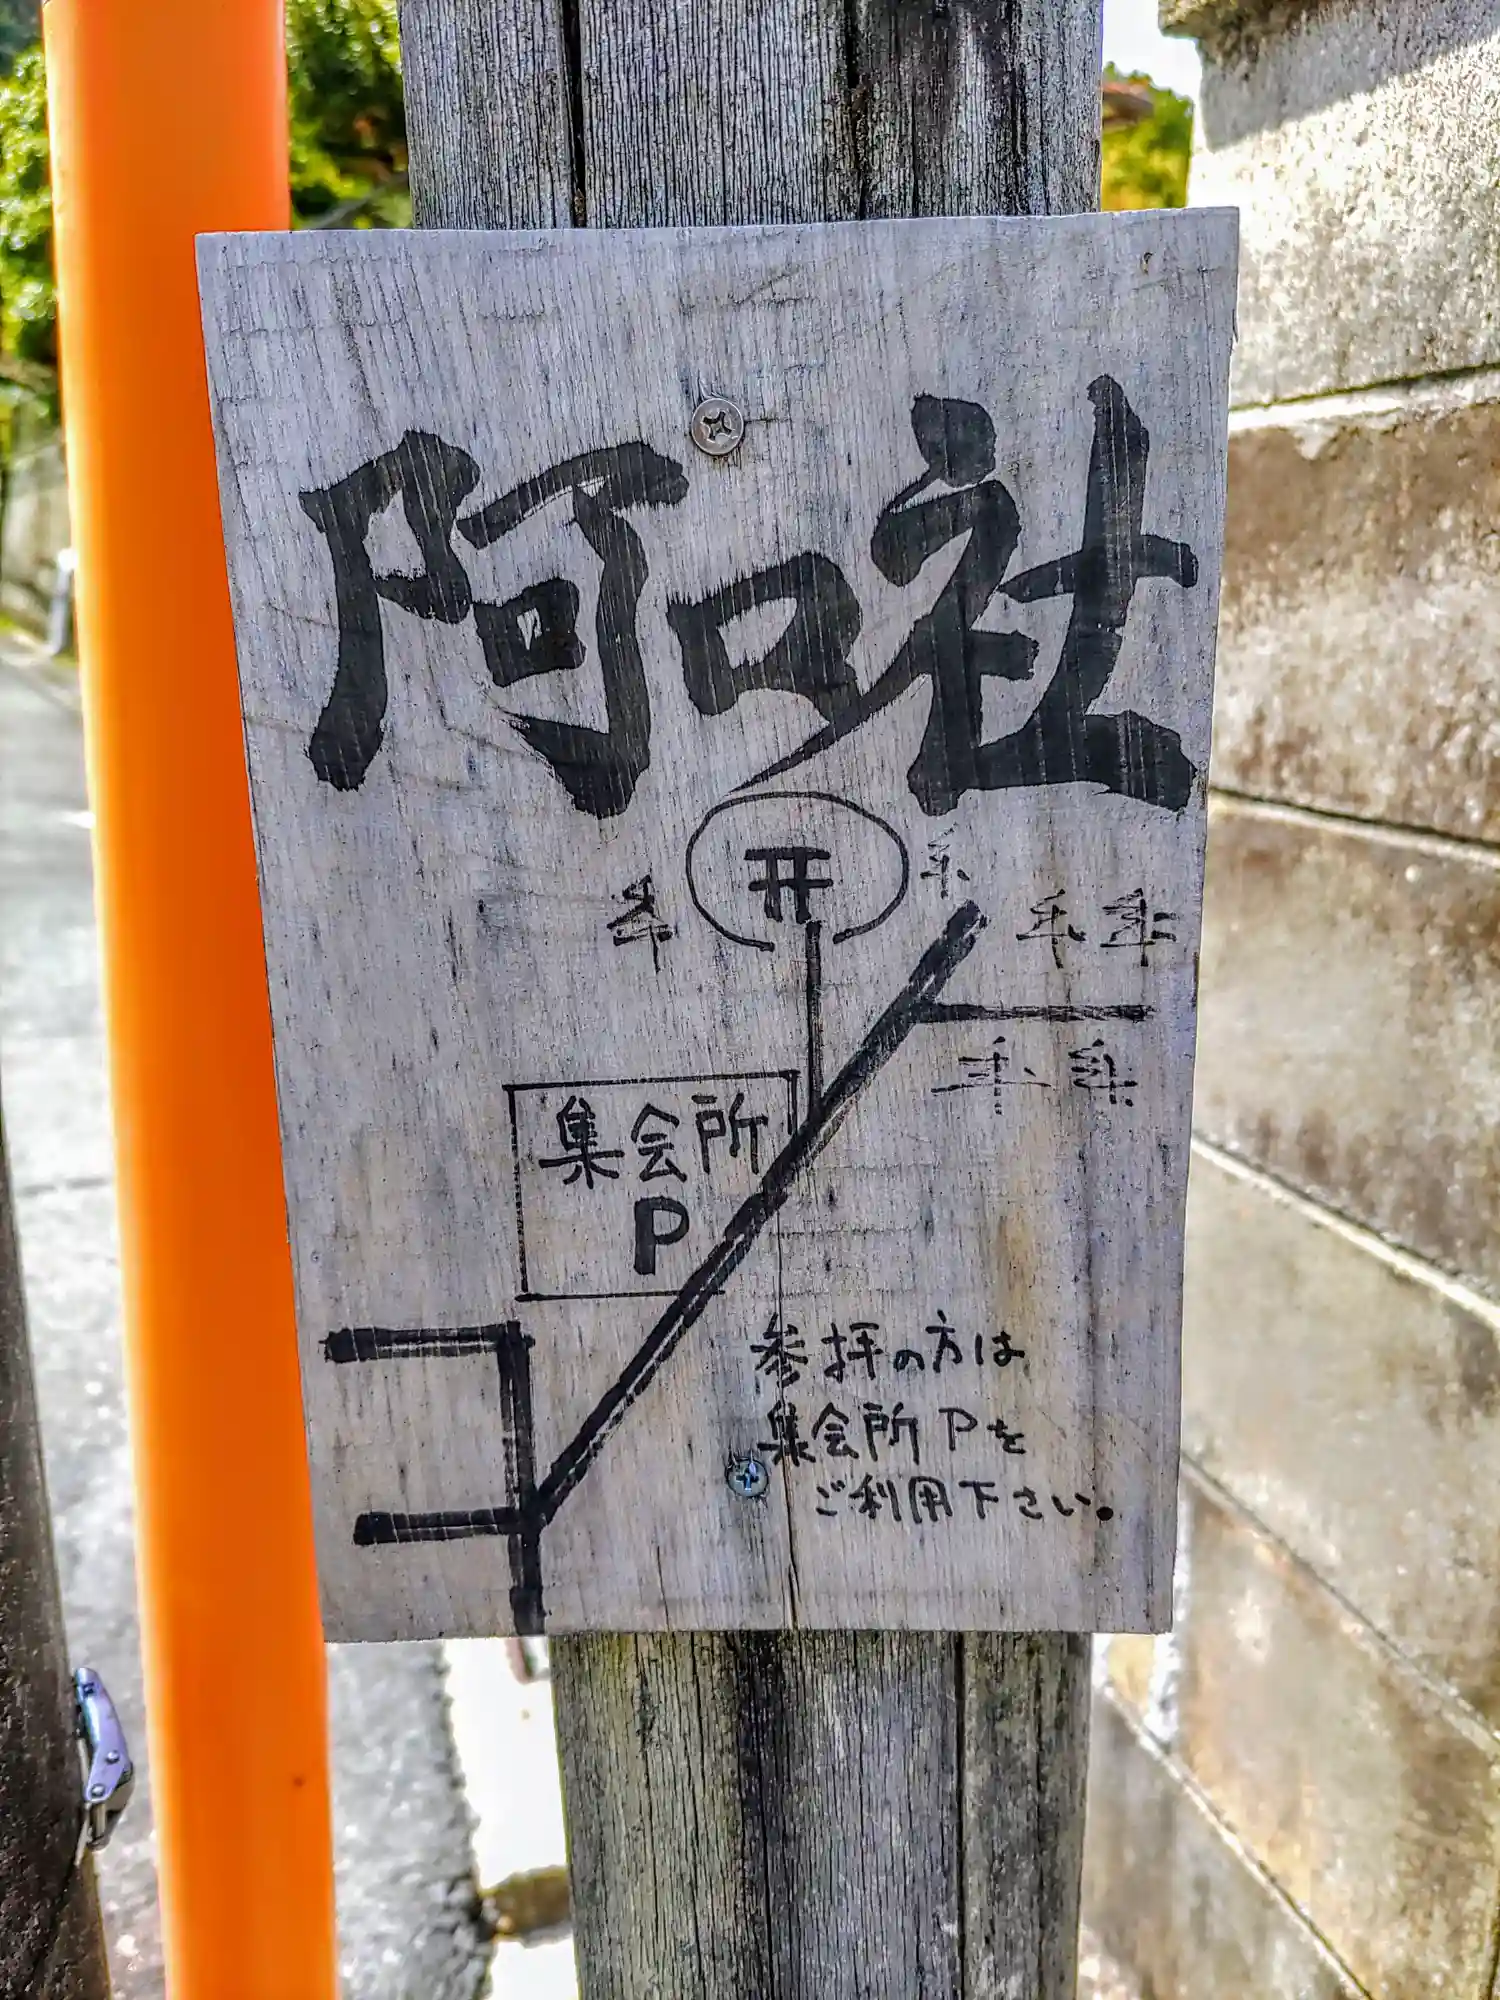 阿口社
集会所
P
参拝の方は
集会所Pを
ご利用下さい。